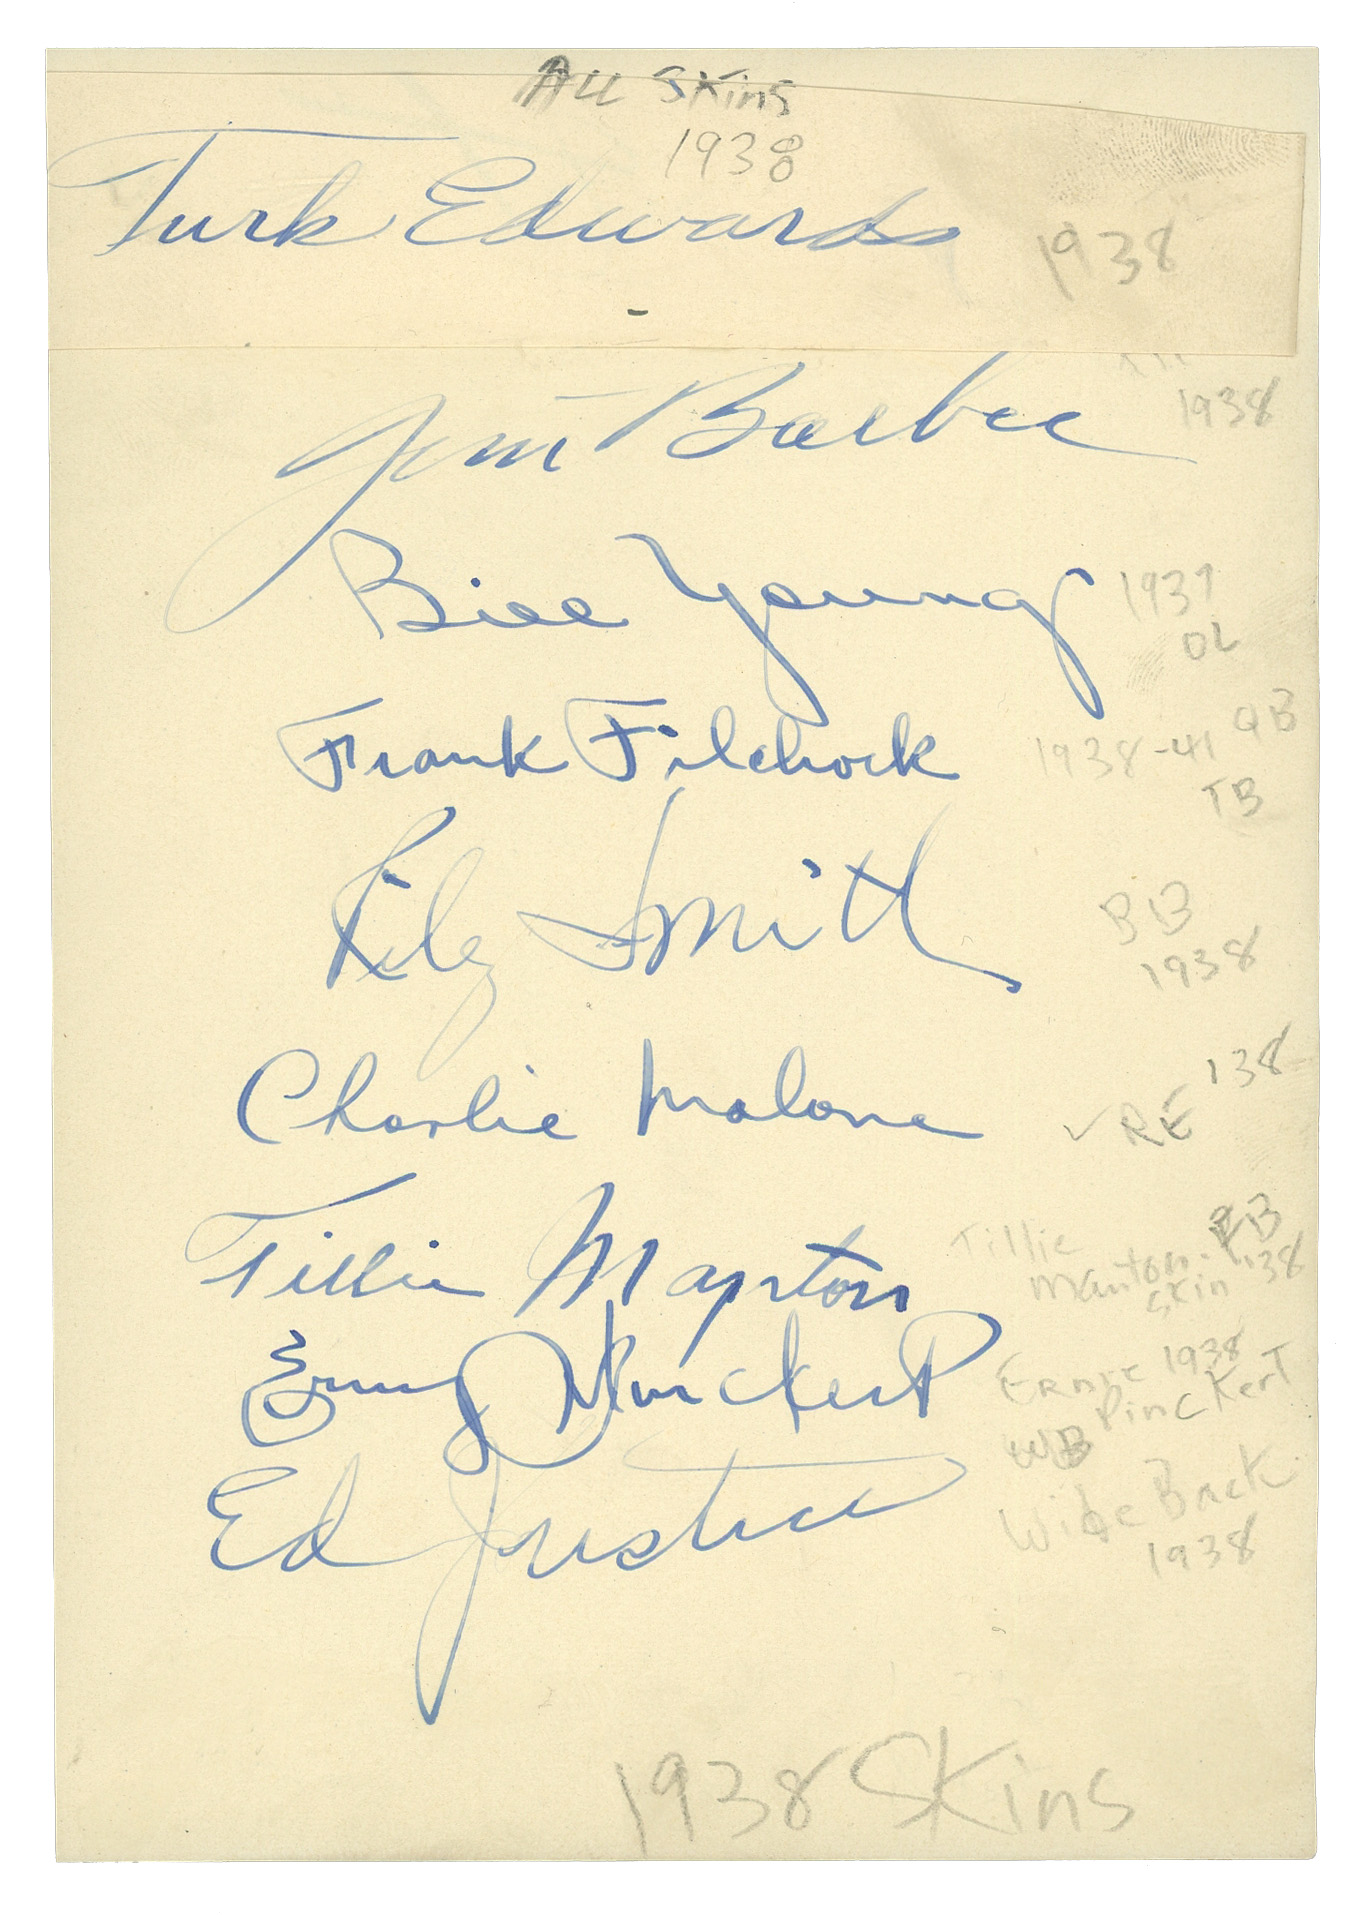 All Skins
1938
Turk Edwards
1938
Jim Barber
1938
Bill Young
1937
OL
Frank Filchock
1938-41 QB
TB
Riley Smith
BB
1938
Charlie Malone
✓ RE '38
Tillie Manton
Tillie
Manton - RB
Skin '38
Erny Pinckert
Ernie 1938
Pinckert
WB
Ed Justice
Wide Back
1938
1938 Skins